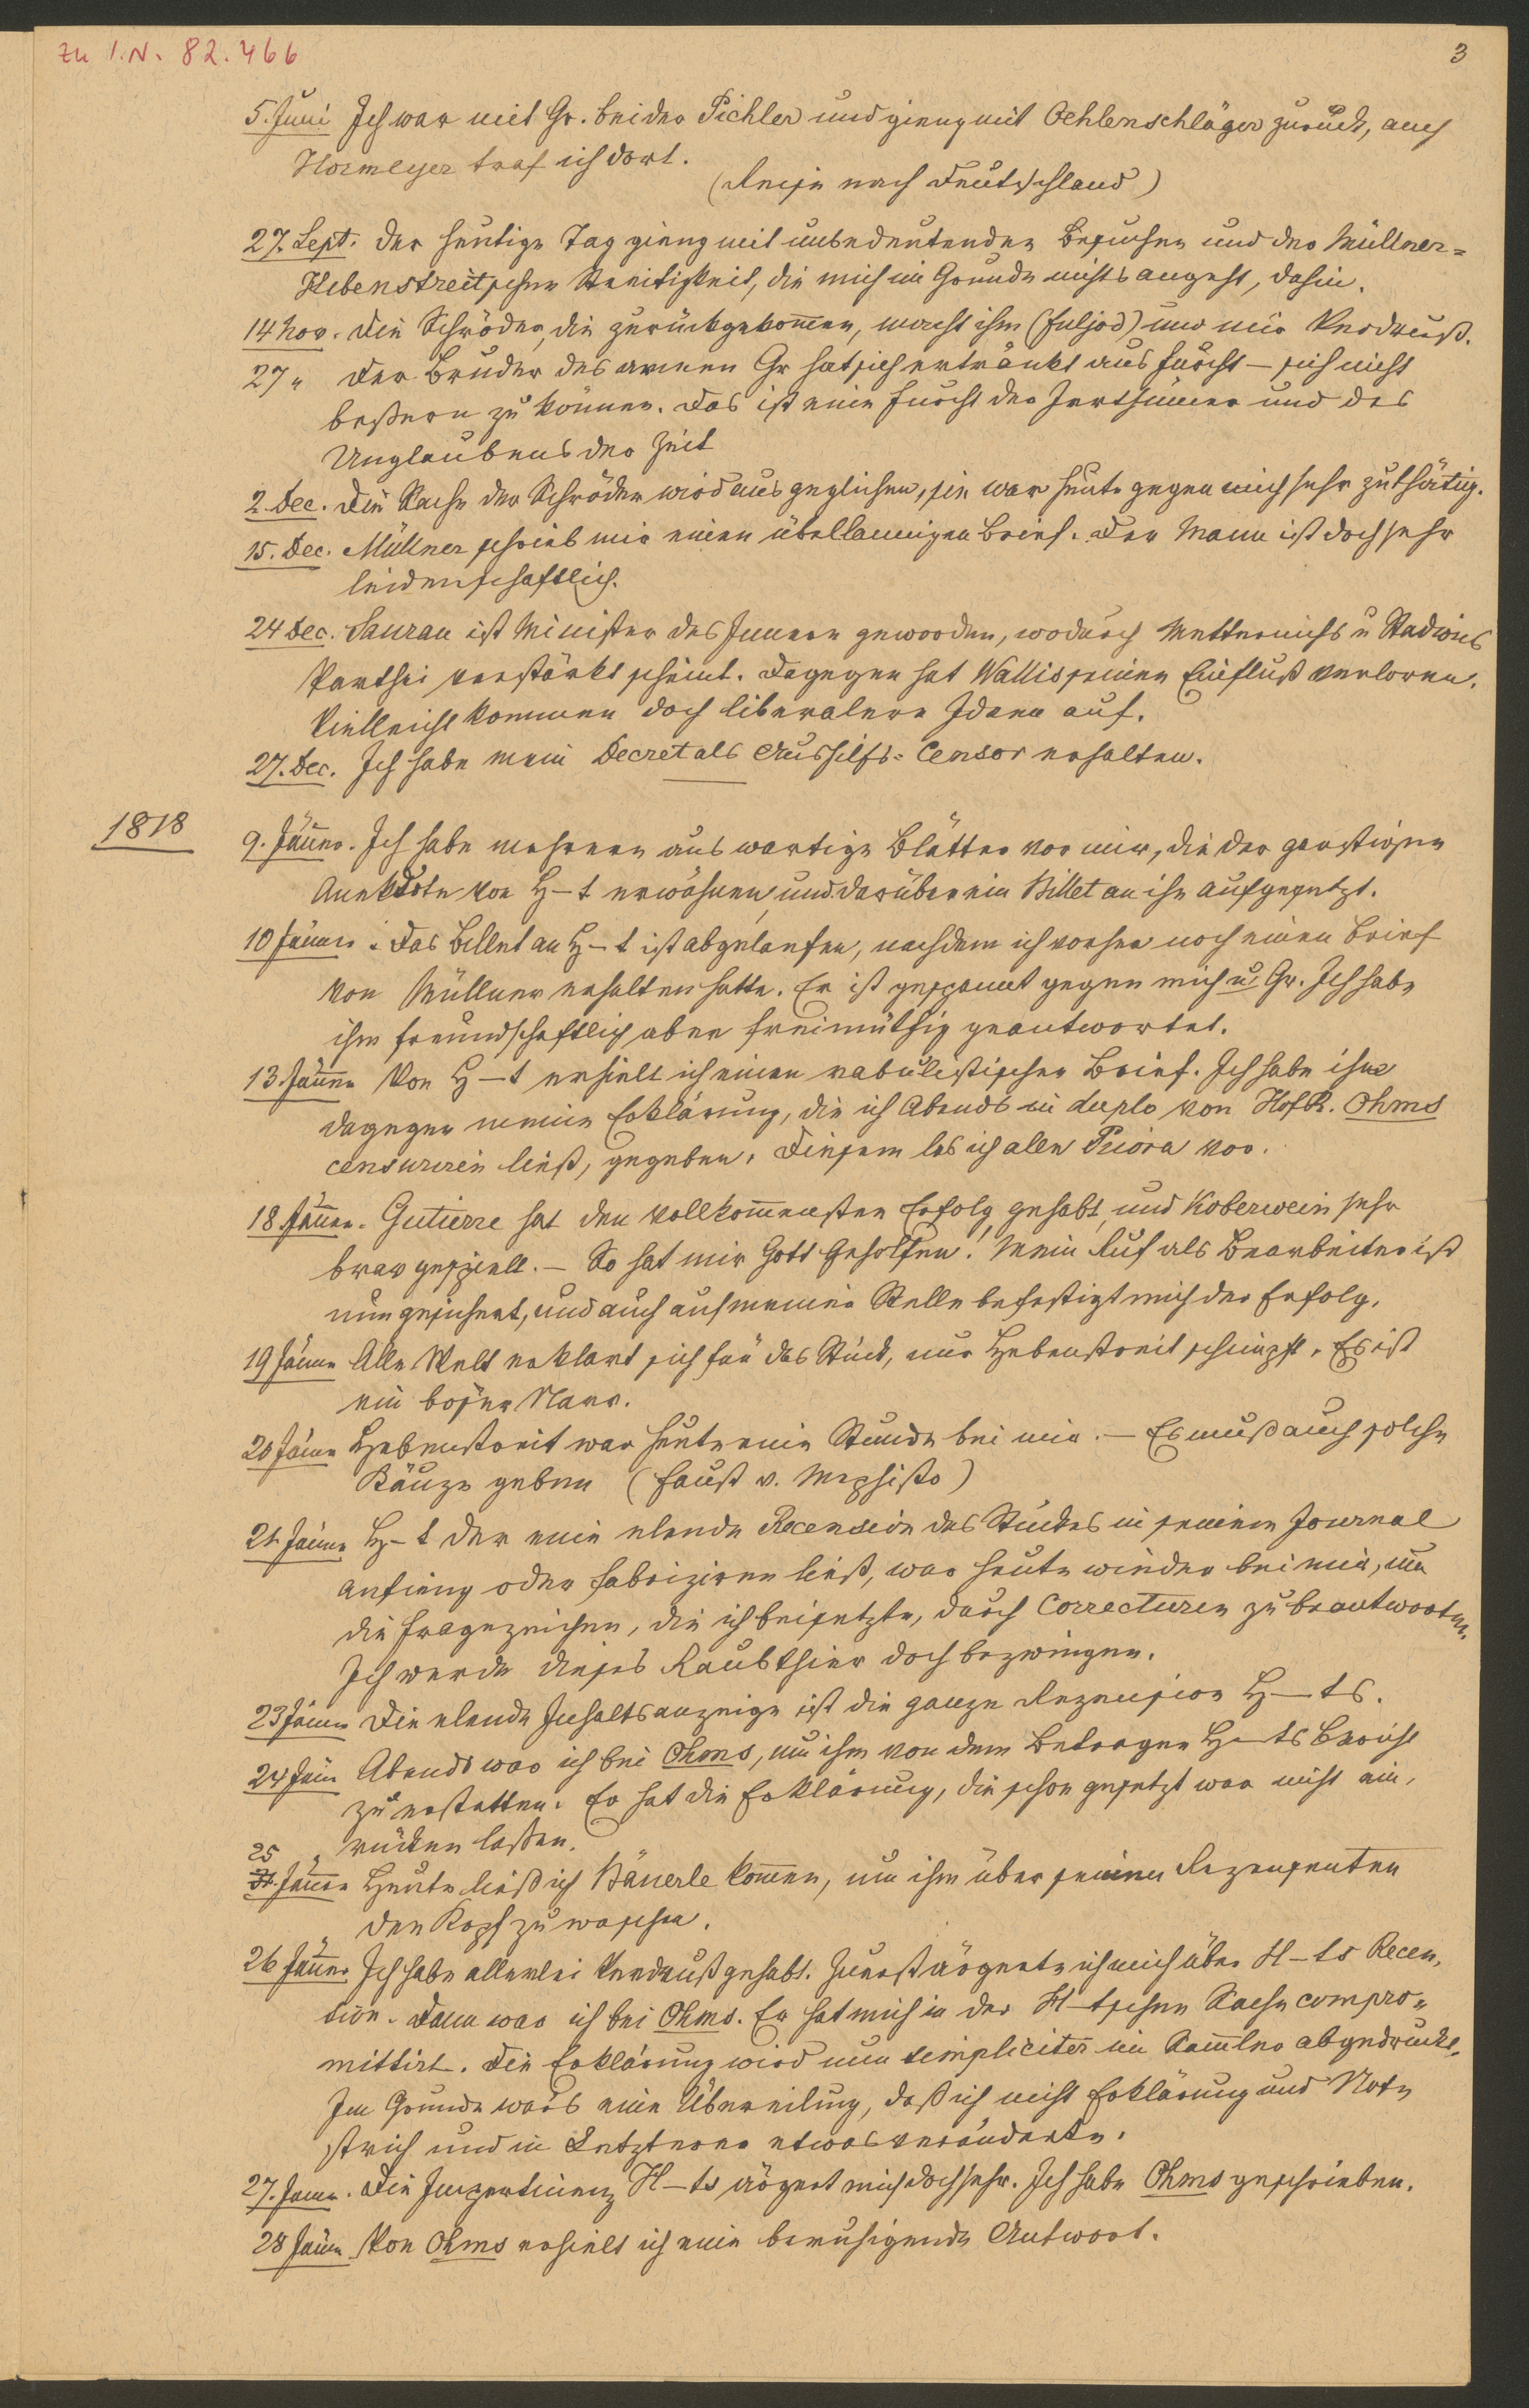 zu I.N. 82.466
3
5. Juni Ich war mit Gr. bei der Pichler und gieng mit Oehlenschläger zurück, auch
Hormeyer traf ich dort.
(Reise nach Deutschland)
27. Sept. Der heutige Tag gieng mit unbedeutenden Besuchen und der Müllner=
Hebenstreitschen Streitigkeit, die mich im Grunde nichts angeht, dahin.
14 Nov. Die Schröder, die zurückgekommen, macht ihm (Fuljod) und mir Verdruß.
27 " Der Bruder des armen Gr hat sich ertränkt aus Furcht – sich nicht
beßern zu können. Das ist eine Frucht der Irrthümer und des
Unglaubens der Zeit
2. Dec. Die Sache der Schröder wird ausgeglichen, sie war heute gegen mich sehr zuthätig.
15. Dec. Müllner schrieb mir einen übellaunigen Brief. Der Mann ist doch sehr
leidenschaftlich.
24 Dec. Saurau ist Minister des Innern geworden, wodurch Metternichs u Stadions
Parthei verstärkt scheint. Dagegen hat Wallis seinen Einfluß verloren.
Vielleicht kommen doch liberalere Ideen auf.
27. Dec. Ich habe mein Decret als Aushilfs=Censor erhalten.
1818
9. Jänner. Ich habe mehrere auswartige Blätter vor mir, die der garstigen
Anekdote von H–t erwähnen, und darüber ein Billet an ihn aufgesetzt.
10 Jänner. Das Billet an H–t ist abgelaufen, nachdem ich vorher noch einen Brief
von Müllner erhalten hatte. Er ist gespannt gegen mich u. Gr. Ich habe
ihm freundschaftlich aber freimüthig geantwortet.
13 Jänner Von H–t erhielt ich einen rabulistischen Brief. Ich habe ihm
dagegen meine Erklärung, die ich Abends in duplo von HofR. Ohms
censuriren ließ, gegeben. Diesem las ich alle Priora vor.
18 Jänner. Gutierre hat den vollkommensten Erfolg gehabt, und Koberwein sehr
brav gespielt. – So hat mir Gott geholfen! Mein Ruf als Bearbeiter ist
nun gesichert, und auch auf meiner Stelle befestigt mich der Erfolg.
19 Jänner Alle Welt erklart sich für das Stück, nur Hebenstreit schimpft. Es ist
ein böser Narr.
20 Jänner Hebenstreit war heute eine Stunde bei mir. – Es muß auch solche
Käuze geben (Faust v. Mephisto)
21 Jänner H–t der eine elende Recension des Stückes in seinem Journal
anfieng oder fabriziren ließ, war heute wieder bei mir, um
die Fragezeichen, die ich beisetzte, durch Correcturen zu beantworten.
Ich werde dieses Raubthier doch bezwingen.
23 Jänner Die elende Inhaltsanzeige ist die ganze Rezension H–ts.
24 Jän Abends war ich bei Ohms, um ihm von dem Betragen H–ts Bericht
zu erstatten. Er hat die Erklärung, die schon gesetzt war nicht ein,
rücken lassen.
25 "
Jänner Heute ließ ich Bäuerle kommen, um ihm über seinen Rezensenten
den Kopf zu waschen.
26 Jänner. Ich habe allerlei Verdruß gehabt. Zuerst ärgerte ich mich über H–ts Recen,
sion. Dann war ich bei Ohms. Er hat mich in der H–tschen Sache compro=
mittirt. Die Erklärung wird nun simpliciter im Sammler abgedruckt.
Im Grunde war's eine Übereilung, daß ich nicht Erklärung und Note
strich und in Letzterer etwas veränderte.
27. Jänn. Die Impertinenz H–ts ärgert mich doch sehr. Ich habe Ohms geschrieben.
28 Jänn Von Ohms erhielt ich eine beruhigende Antwort.